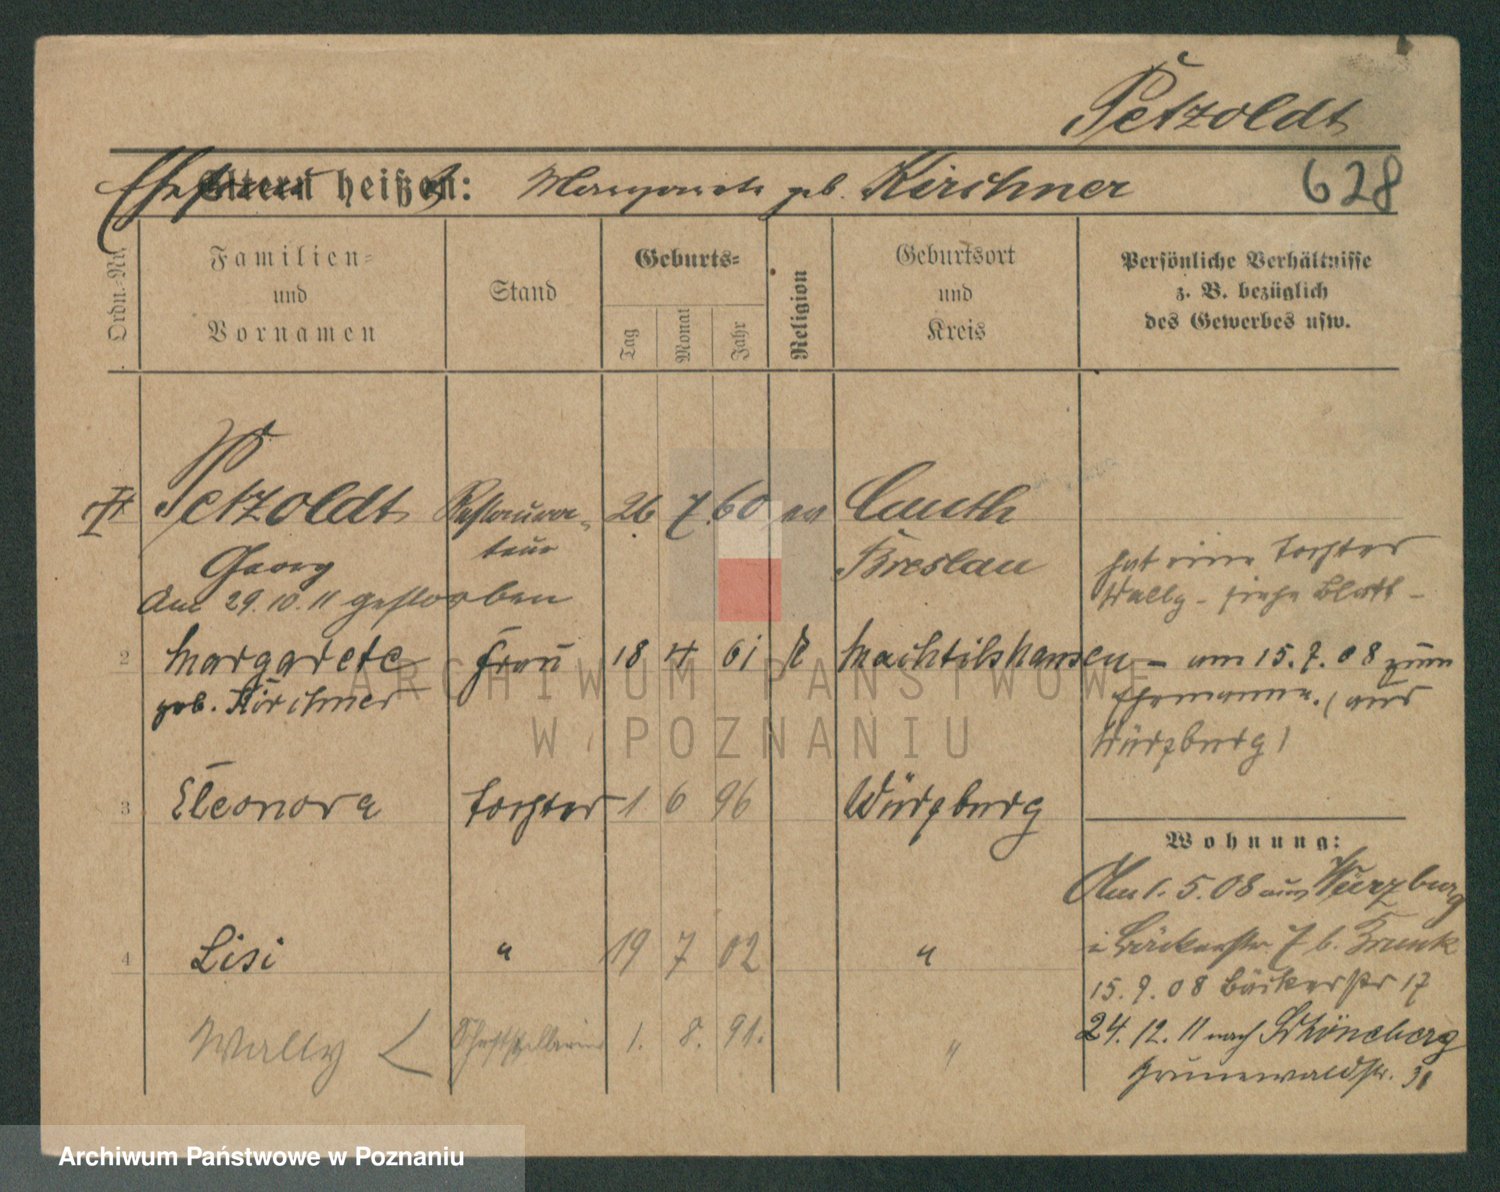 Petzoldt
Ehefrau Eltern heißen: Margarete geb. Kirchner 628
Ordn.-Nr.
Familien-
und
Vornamen
Stand
Geburts-
Tag
Monat
Jahr
Religion
Geburtsort
und
Kreis
Persönliche Verhältnisse
z. B. bezüglich
des Gewerbes usw.
Petzoldt Restaura- 26 7. 60 ev Canth
teur
Georg Breslau hat eine Tochter
Am 29.10.11 gestorben Wally - siehe Blatt -
2 Margarete Frau 18 4 61 k Machtilshausen - am 15.7.08 zum
geb. Kirchner Ehemanne. (aus
Würzburg)
3 Eleonora Tochter 1 6 96 Würzburg
Wohnung:
Am 1.5.08 aus Wurzburg
4 Lisi " 19 7 02 "
i Bäckerstr. 7 b.
15.9.08 Bäckerstr 17
Wally 1. 8. 91. "
24.12.11 nach Schöneberg
Grunewaldstr. 31
ARCHIWUM PAŃSTWOWE
W POZNANIU
Archiwum Państwowe w Poznaniu